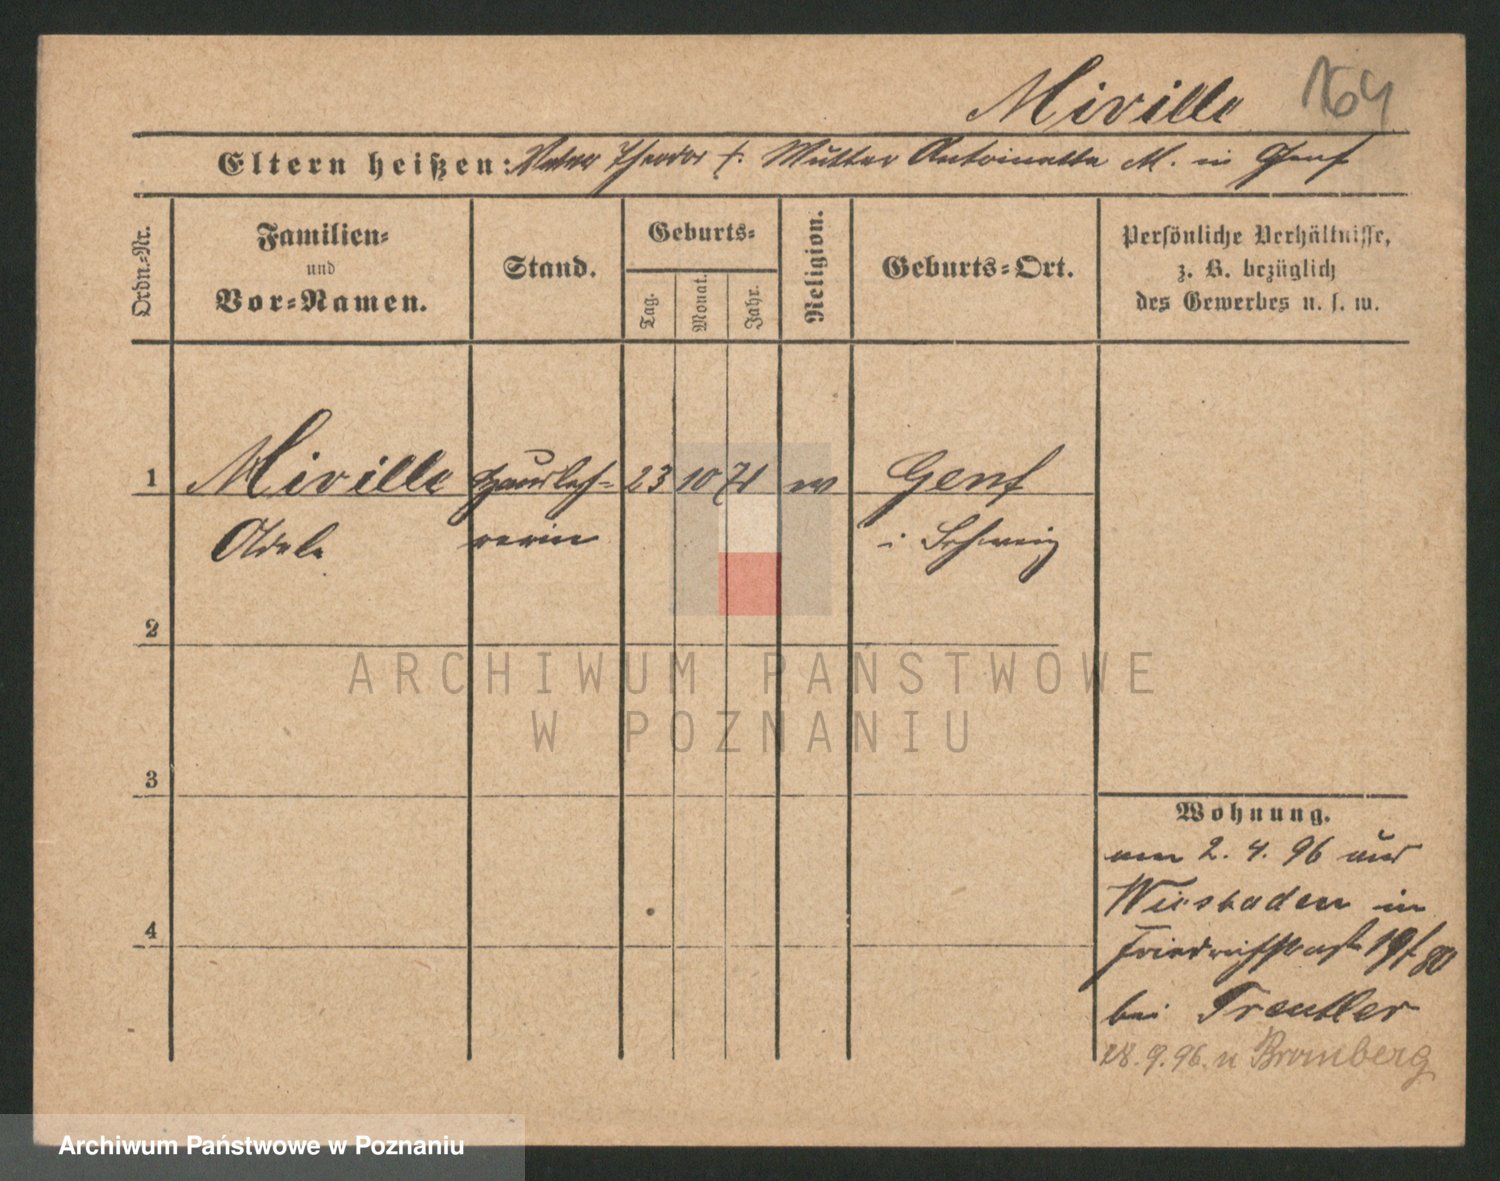 Miville 164
Eltern heißen: Vater Theodor †. Mutter Antoinette M. in Genf
Ordn.-Nr.
Familien-
und
Vor-Namen.
Stand.
Geburts-
Tag.
Monat.
Jahr.
Religion.
Geburts-Ort.
Persönliche Verhältnisse,
z. B. bezüglich
des Gewerbes u. s. w.
1 Miville Hausleh- 23 10 71 Genf
Adele rerin i Schweiz
2
ARCHIWUM PAŃSTWOWE
W POZNANIU
3
4
Wohnung.
am 2. 4. 96 aus
Wiesbaden in
Friedrichstraße 19
bei Treutler
28. 9. 96. n Bromberg
Archiwum Państwowe w Poznaniu